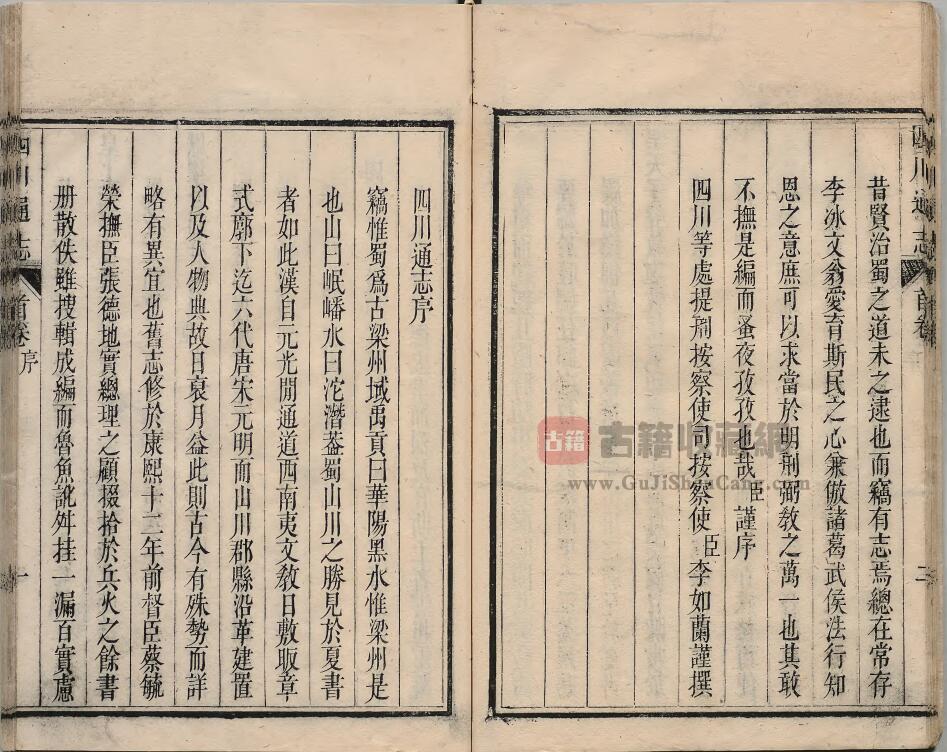 四川通志 首卷
昔賢治蜀之道未之逮也而竊有志焉總在常存
李冰文翁愛育斯民之心兼倣諸葛武侯法行知
恩之意庶可以求當於明刑弼敎之萬一也其敢
不撫是編而蚤夜孜孜也哉臣謹序
四川等處提刑按察使司按察使臣李如蘭謹撰
二
古籍
古籍收藏網
www.GuJiShouCang.com
四川通志序
竊惟蜀爲古梁州域禹貢曰華陽黑水惟梁州是
也山曰岷嶓水曰沱潛蓋蜀山川之勝見於夏書
者如此漢自元光閒通道西南夷文敎日敷販章
式廓下迄六代唐宋元明而山川郡縣沿革建置
以及人物典故日裒月益此則古今有殊勢而詳
略有異宜也舊志修於康熙十二年前督臣蔡毓
榮撫臣張德地實總理之顧掇拾於兵火之餘書
册散佚雖搜輯成編而魯魚訛舛挂一漏百實慮
四川通志 首卷 序 一